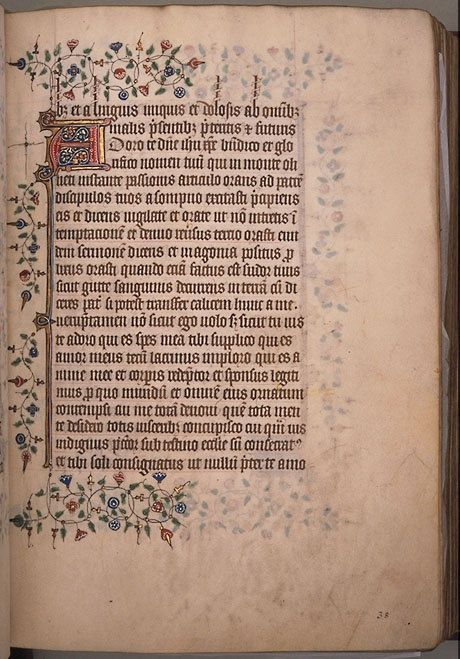 bꝫ et a linguis iniquis et dolosis ab om̄ibꝫ
malis p̄sentibꝫ p̄teritis ⁊ futuris
ADoro te dn̄e ihū xp̄e bn̄dico et glo
rifico nomen tuū qui in monte oli
ueti instante passionis articulo orans ad patrē
discipulos tuos a sompno excitasti p̄cipiens
eis et dicens vigilate et orate ut nō intretis ī
temptacionē et denuo reūsus tercio orasti eun
dem sermonē dicens et inagonia positus ꝓ
lixius orasti quando eciā factus est sudor tuus
sicut gutte sanguinis decurrens in terrā cū di
ceres pat̄ si potest transfer calicem hunc a me
ueruptamen nō sicut ego uolo sꝫ sicut tu uis
te adoro qui es spes mea tibi supplico qui es
amor meus tecū lacrimis imploro qui es a
nime mee et corꝑis redēptor et sponsus legiti
mus ꝓ quo mundū et omnem eius ornatum
contempsi cui me totā deuoui quē tota men
te desidero totis uisceribꝫ concupisco cui
indignus sub ecclie sū consecratꝰ
et tibi soli consignatus ut nullū p̄ter te amo
33